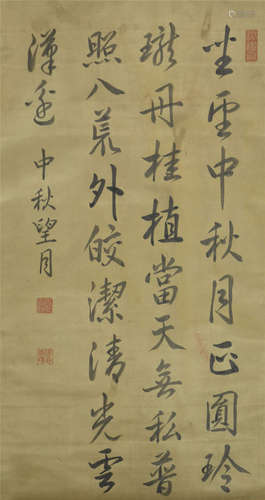 坐望中秋月正圓玲
瓏丹桂植當天無私普
照八荒外皎潔清光雲
漢邉
中秋望月